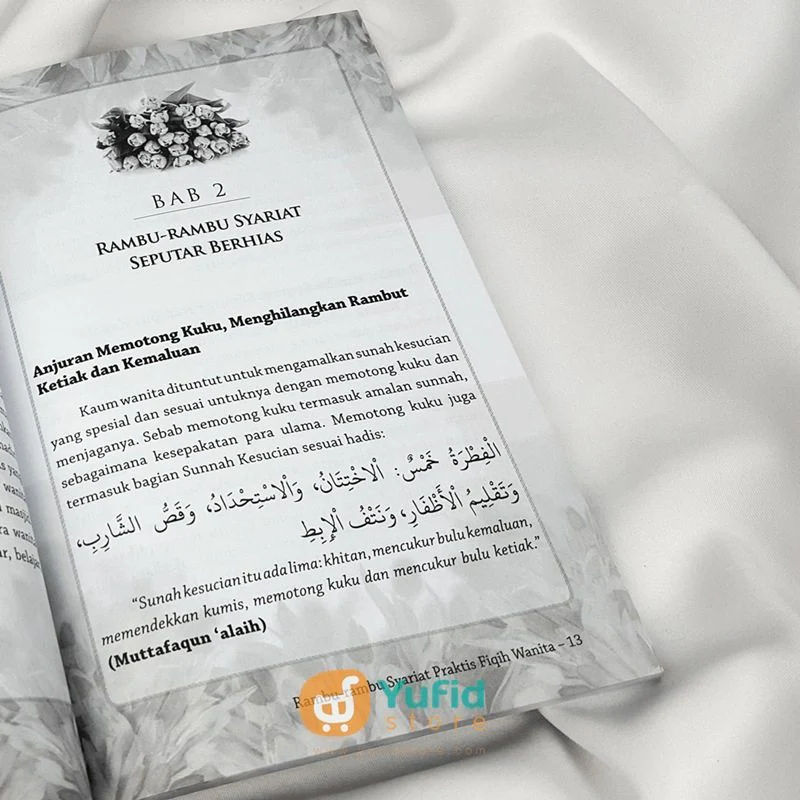 BAB 2
RAMBU-RAMBU SYARIAT
SEPUTAR BERHIAS
Anjuran Memotong Kuku, Menghilangkan Rambut
Ketiak dan Kemaluan
Kaum wanita dituntut untuk mengamalkan sunah kesucian
yang spesial dan sesuai untuknya dengan memotong kuku dan
menjaganya. Sebab memotong kuku termasuk amalan sunnah,
sebagaimana kesepakatan para ulama. Memotong kuku juga
termasuk bagian Sunnah Kesucian sesuai hadis:
الْفِطْرَةُ خَمْسٌ: الْاخْتِتَانُ، وَالْاسْتِحْدَادُ، وَقَصُّ الشَّارِبِ،
وَتَقْلِيمُ الْأَظْفَارِ، وَنَتْفُ الْإِبِطِ
“Sunah kesucian itu ada lima: khitan, mencukur bulu kemaluan,
memendekkan kumis, memotong kuku dan mencukur bulu ketiak.”
(Muttafaqun ‘alaih)
Rambu-rambu Syariat Praktis Fiqih Wanita – 13
Yufid
store